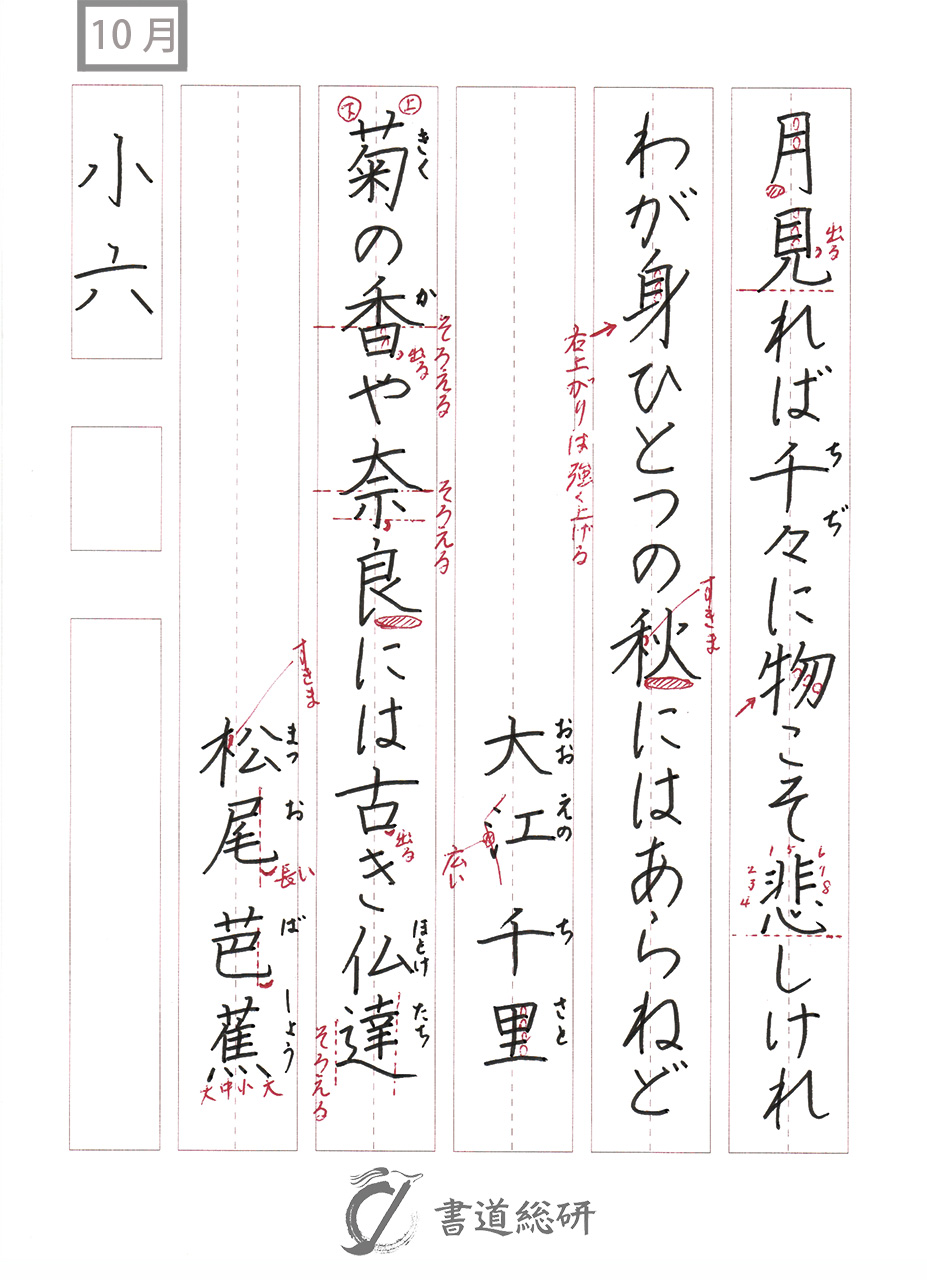 10月
月見れば千々に物こそ悲しけれ
ち
ぢ
出る
1 5 6
2 3 4
7 8
わが身ひとつの秋にはあらねど
右上がりは強く上げる
すきま
大江千里
おお
えの
ち
さと
広い
上
下
菊の香や奈良には古き仏達
きく
か
ほとけ
たち
そろえる
出る
そろえる
出る
そろえる
松尾芭蕉
まつ
お
ば
しょう
すきま
長い
大中小大
小六
書道総研